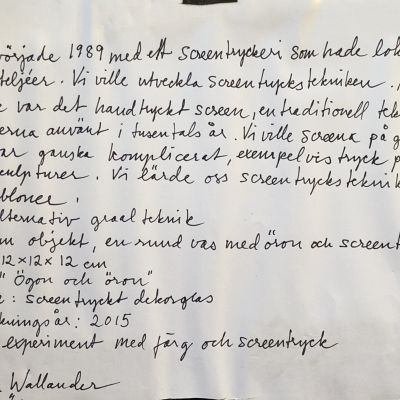 örjade 1989 med ett screentryckeri som hade lok
teljéer. Vi ville utveckla screentryckstekniken.
var det handtryckt screen, en traditionell tek
erna använt i tusentals år. Vi ville screena på g
ar ganska komplicerat, exempelvis tryck p
culpturer. Vi lärde oss screentryckstekni
bloner.
lternativ graalteknik
m objekt, en rund vas med öron och screent
12×12×12 cm
" Ögon och öron"
: screentryckt dekorglas
kningsår: 2015
experiment med färg och screentryck
Wallander